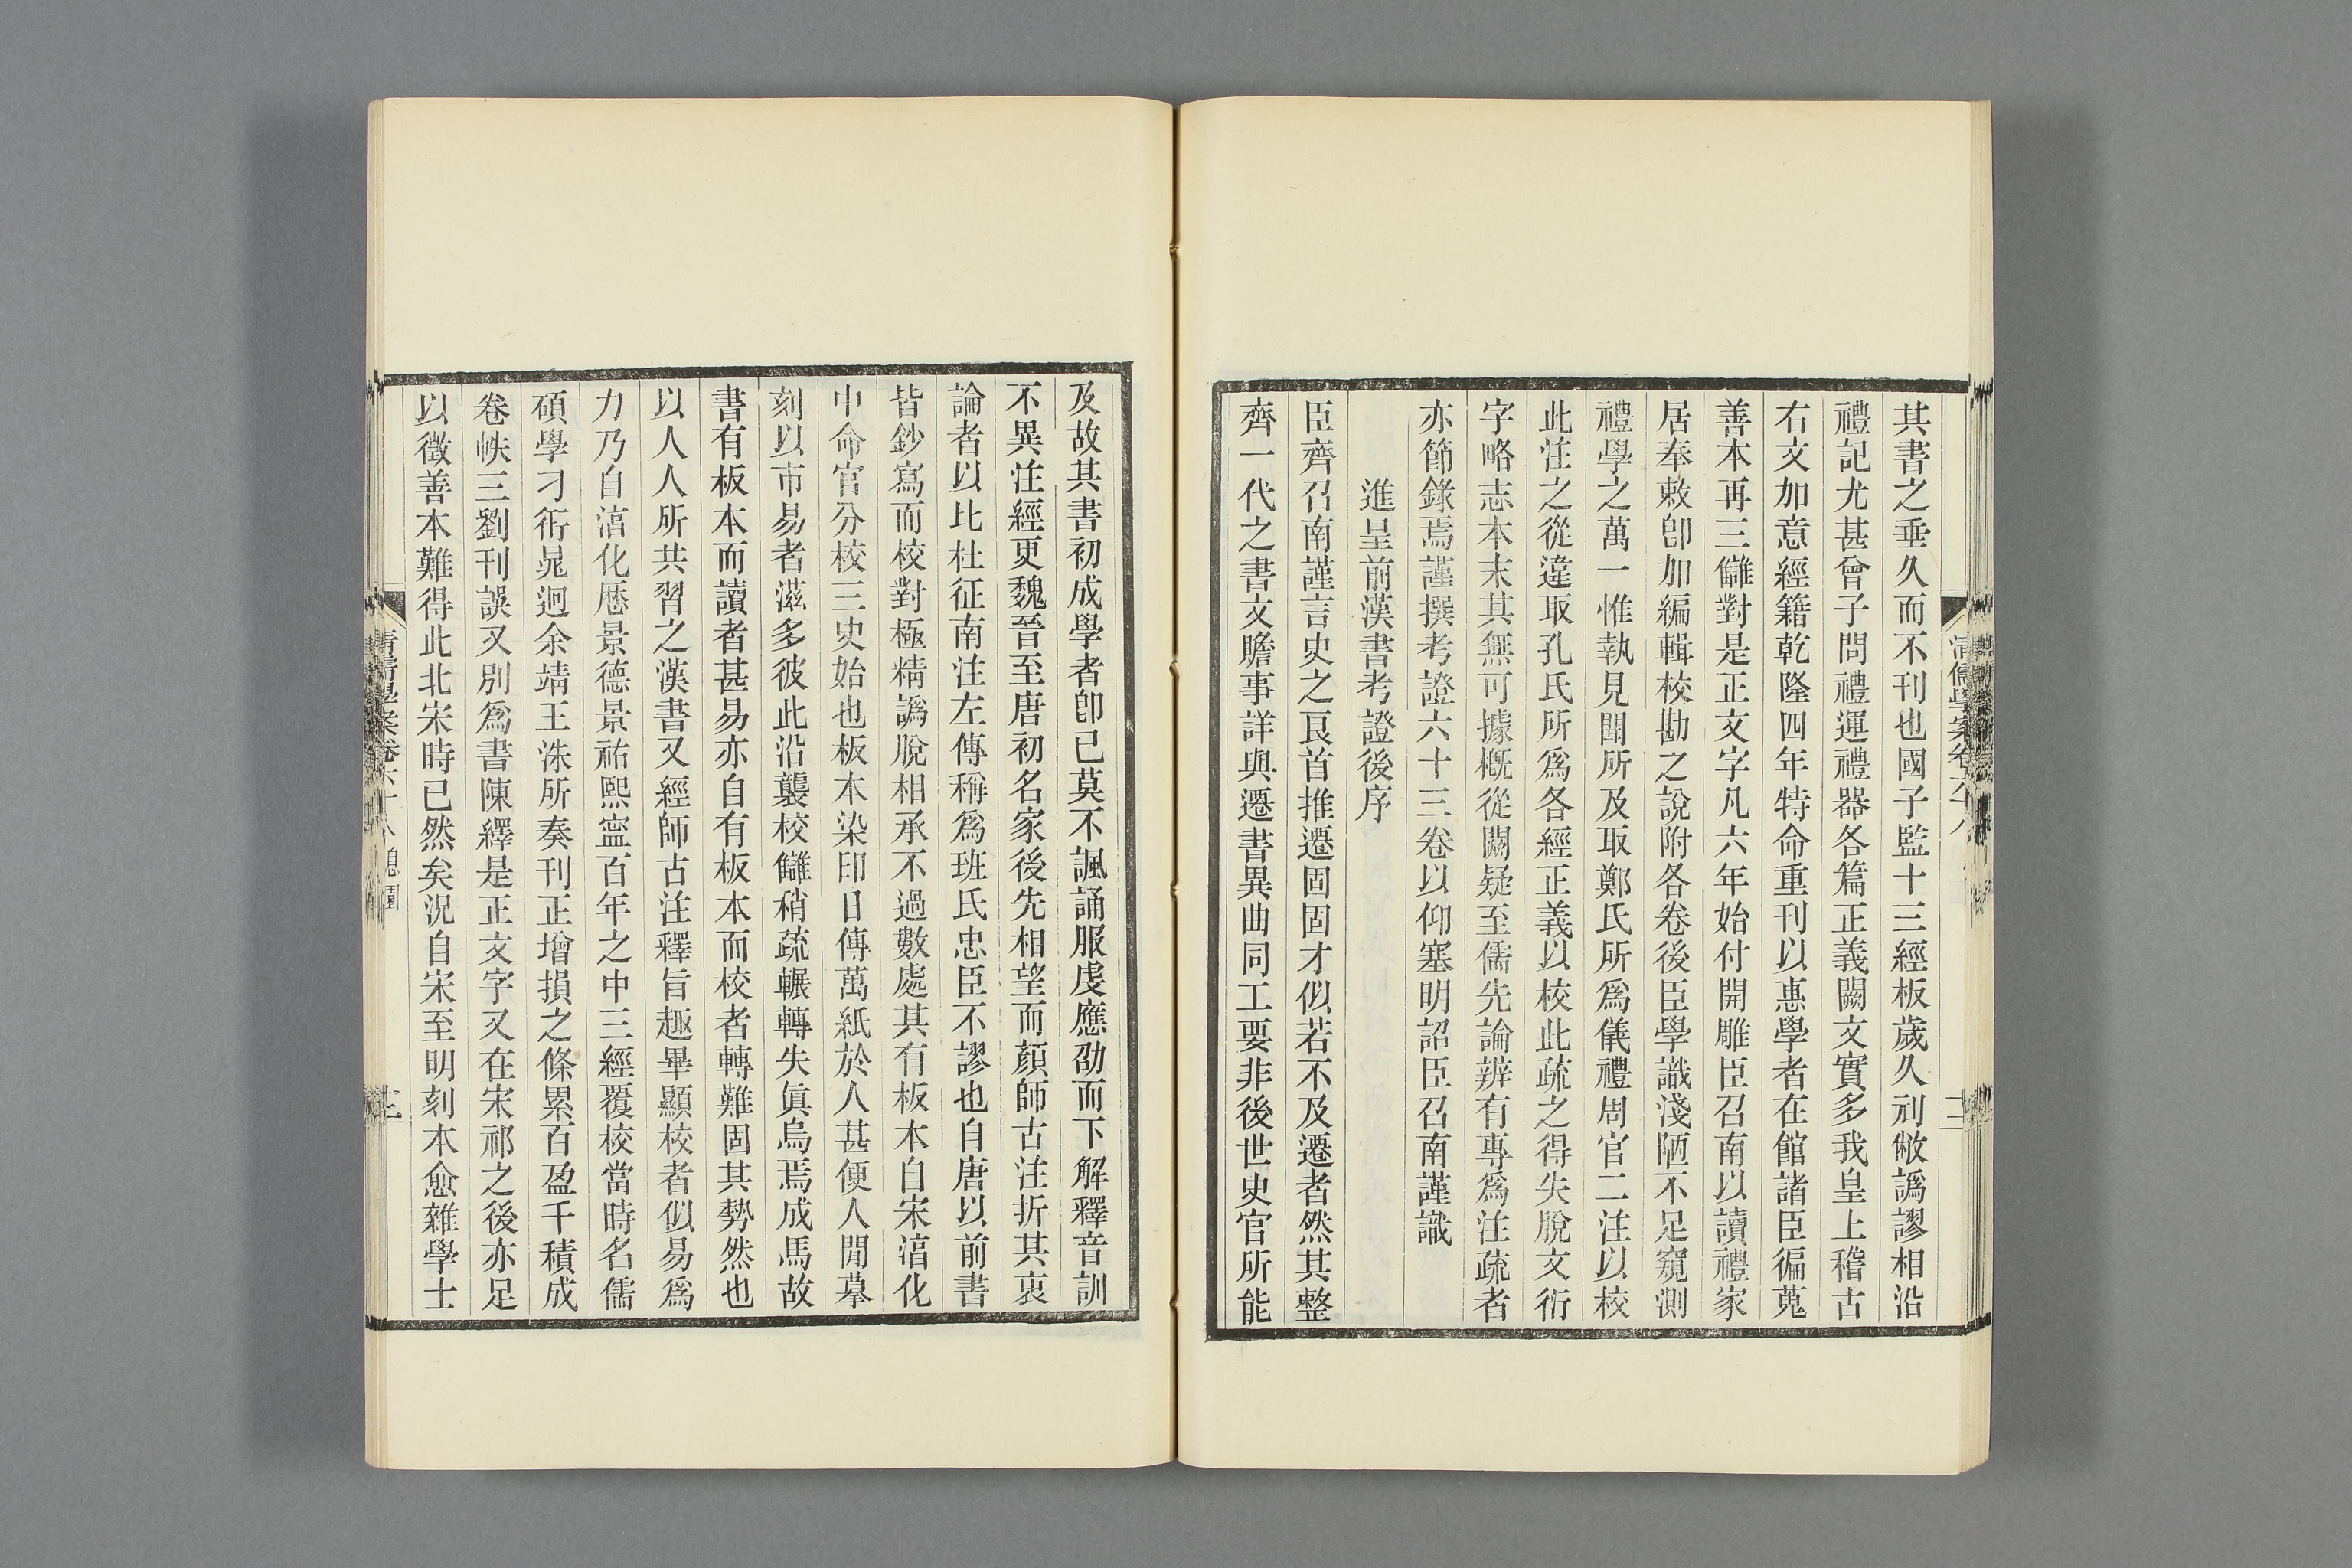 其書之垂久而不刊也國子監十三經板歲久刓敝譌謬相沿
禮記尤甚曾子問禮運禮器各篇正義闕文實多我皇上稽古
右文加意經籍乾隆四年特命重刊以惠學者在館諸臣徧蒐
善本再三讎對是正文字凡六年始付開雕臣召南以讀禮家
居奉敕卽加編輯校勘之說附各卷後臣學識淺陋不足窺測
禮學之萬一惟執見聞所及取鄭氏所爲儀禮周官二注以校
此注之從違取孔氏所爲各經正義以校此疏之得失脫文衍
字略志本末其無可據槪從闕疑至儒先論辨有專爲注疏者
亦節錄焉謹撰考證六十三卷以仰塞明詔臣召南謹識
進呈前漢書考證後序
臣齊召南謹言史之良首推遷固固才似若不及遷者然其整
齊一代之書文贍事詳與遷書異曲同工要非後世史官所能
清儒學案卷六十八
十二
及故其書初成學者卽已莫不諷誦服虔應劭而下解釋音訓
不異注經更魏晉至唐初名家後先相望而顏師古注折其衷
論者以比杜征南注左傳稱爲班氏忠臣不謬也自唐以前書
皆鈔寫而校對極精譌脫相承不過數處其有板本自宋淯化
中命官分校三史始也板本染印日傳萬紙於人甚便人閒摹
刻以市易者滋多彼此沿襲校讎稍疏輾轉失眞烏焉成馬故
書有板本而讀者甚易亦自有板本而校者轉難固其勢然也
以人人所共習之漢書又經師古注釋旨趣畢顯校者似易爲
力乃自淯化歷景德景祐熙寍百年之中三經覆校當時名儒
碩學刁衎晁迥余靖王洙所奏刊正增損之條累百盈千積成
卷帙三劉刊誤又別爲書陳繹是正文字又在宋祁之後亦足
以徵善本難得此北宋時已然矣況自宋至明刻本愈雜學士
清儒學案卷六十八 息園
十三